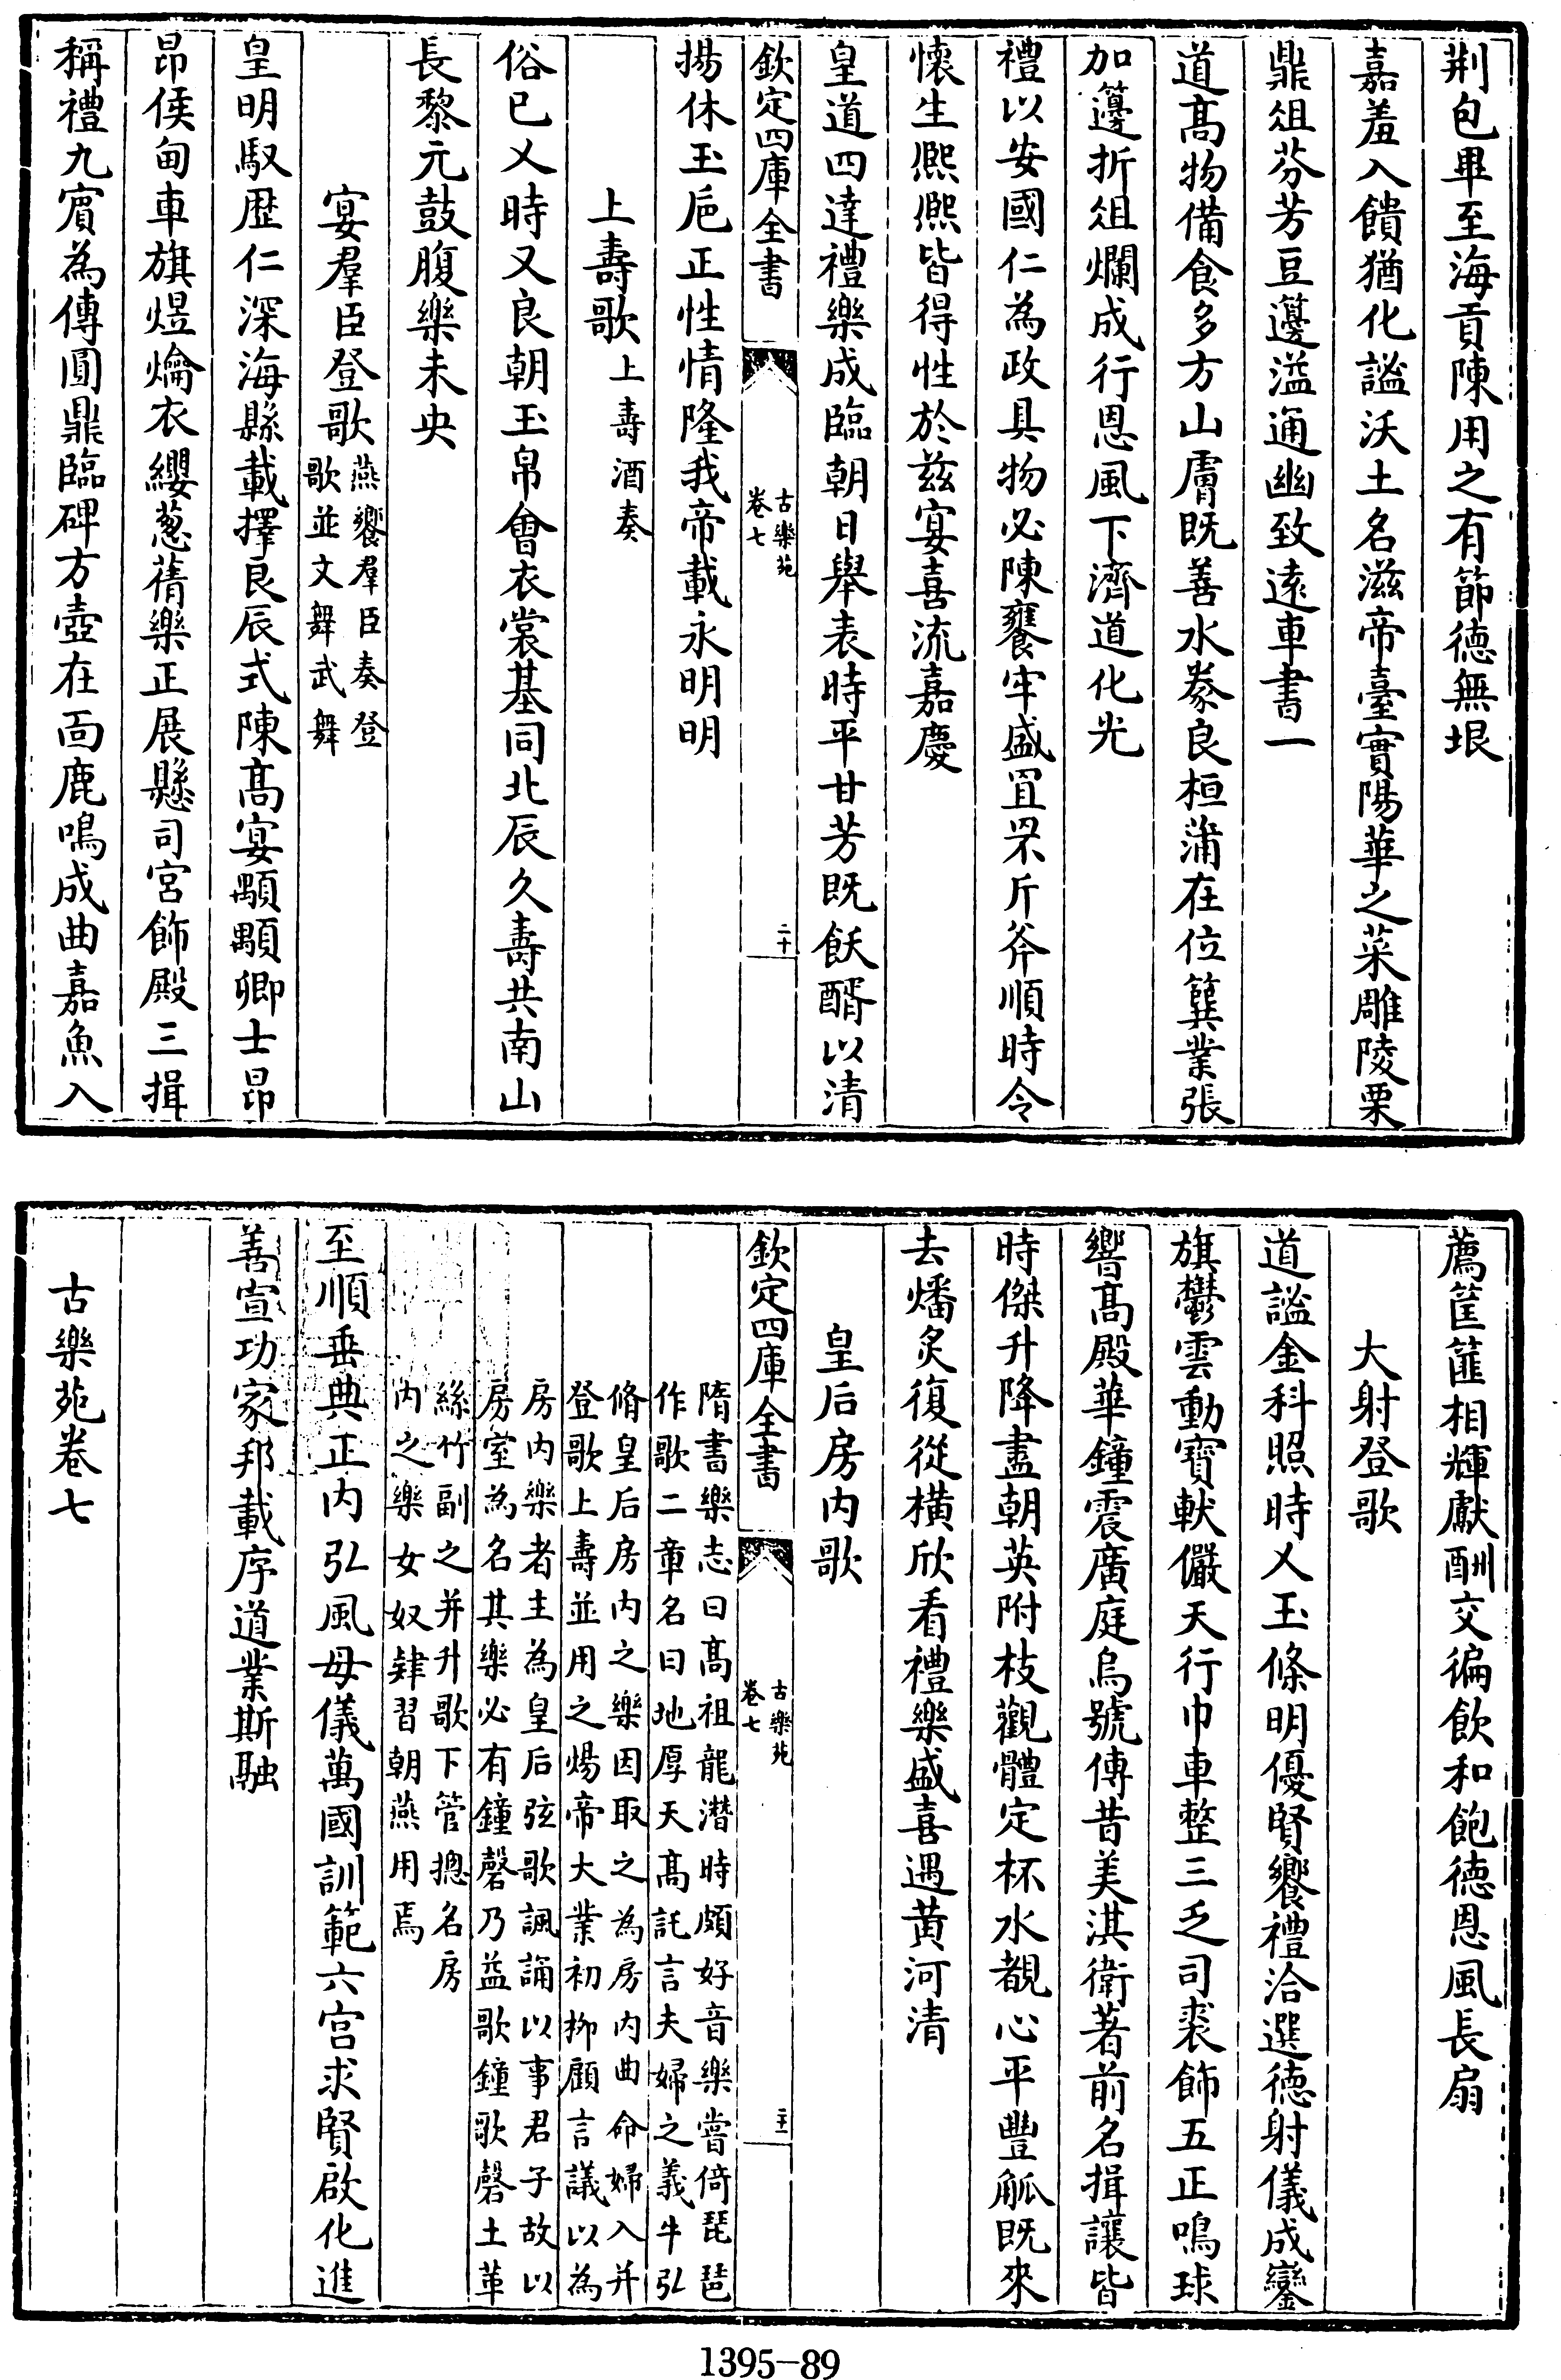 荆包畢至海貢陳用之有節德無垠
嘉羞入饋猶化謐沃土名滋帝臺實陽華之菜雕陵栗
鼎俎芬芳豆籩溢通幽致遠車書一
道髙物備食多方山膚既善水豢良桓蒲在位簨業張
加籩折俎爛成行恩風下濟道化光
禮以安國仁為政具物必陳饔牢盛罝罘斤斧順時令
懷生熈熈皆得性於兹宴喜流嘉慶
皇道四達禮樂成臨朝日舉表時平甘芳既飫醑以清
欽定四庫全書
古樂苑
卷七
二十
揚休玉巵正性情隆我帝載永明明
上壽歌上壽酒奏
俗已乂時又良朝玉帛會衣裳基同北辰久壽共南山
長黎元鼓腹樂未央
宴羣臣登歌燕饗羣臣奏登
歌並文舞武舞
皇明馭歴仁深海縣載擇良辰式陳髙宴顒顒卿士昂
昂侯甸車旗煜爚衣纓葱蒨樂正展懸司宮飾殿三揖
稱禮九賓為傳圓鼎臨碑方壺在面鹿鳴成曲嘉魚入
薦筐篚相輝獻酬交徧飲和飽德恩風長扇
大射登歌
道謐金科照時乂玉條明優賢饗禮洽選德射儀成鑾
旗鬱雲動寶軑儼天行巾車整三乏司裘飾五正鳴球
響髙殿華鐘震廣庭烏號傳昔美淇衛著前名揖讓皆
時傑升降盡朝英附枝觀體定杯水覩心平豐觚既來
去燔炙復從横欣看禮樂盛喜遇黄河清
皇后房内歌
欽定四庫全書
古樂苑
卷七
二十一
隋書樂志曰髙祖龍潛時頗好音樂嘗倚琵琶
作歌二章名曰地厚天髙託言夫婦之義牛弘
脩皇后房内之樂因取之為房内曲命婦入并
登歌上壽並用之煬帝大業初栁顧言議以為
房内樂者主為皇后弦歌諷誦以事君子故以
房室為名其樂必有鐘磬乃益歌鐘歌磬土革
絲竹副之并升歌下管摠名房
内之樂女奴肄習朝燕用焉
至順垂典正内弘風母儀萬國訓範六宫求賢啟化進
善宣功家邦載序道業斯融
古樂苑卷七
1395-89